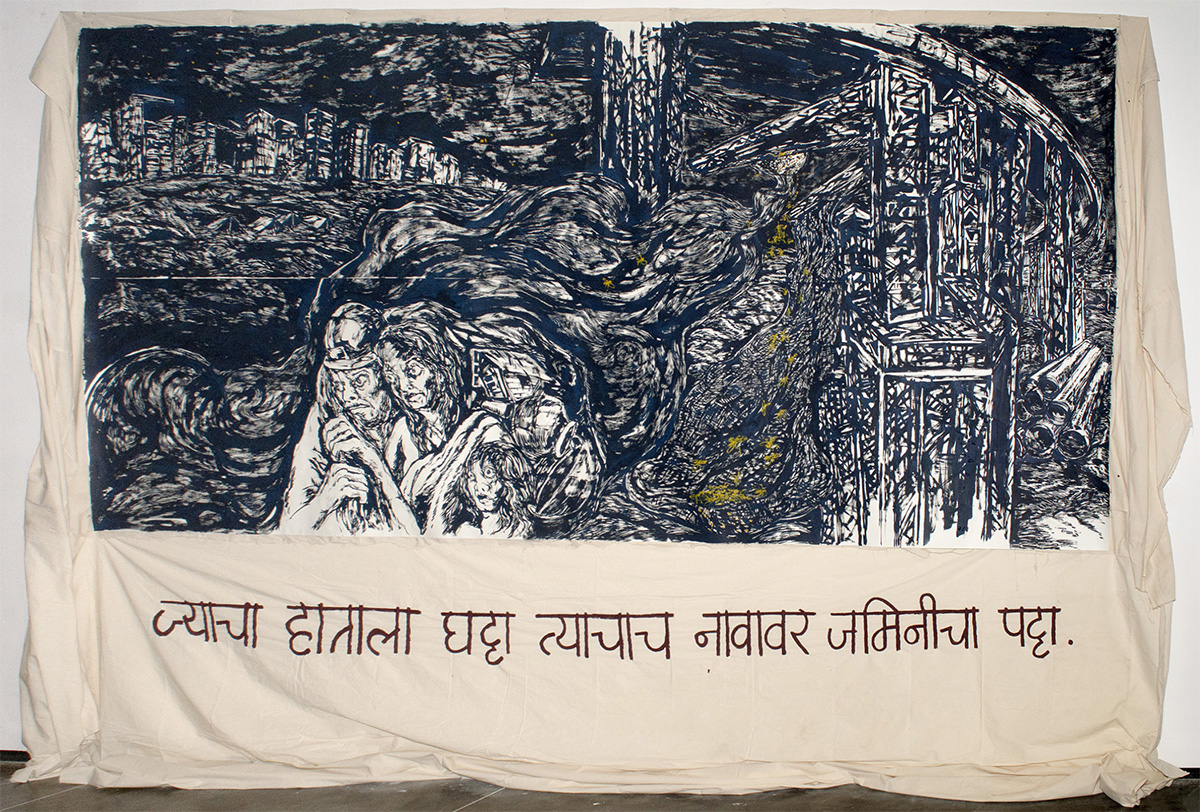 ज्याचा हाताला घट्टा त्याचाच नावावर जमिनीचा पट्टा.